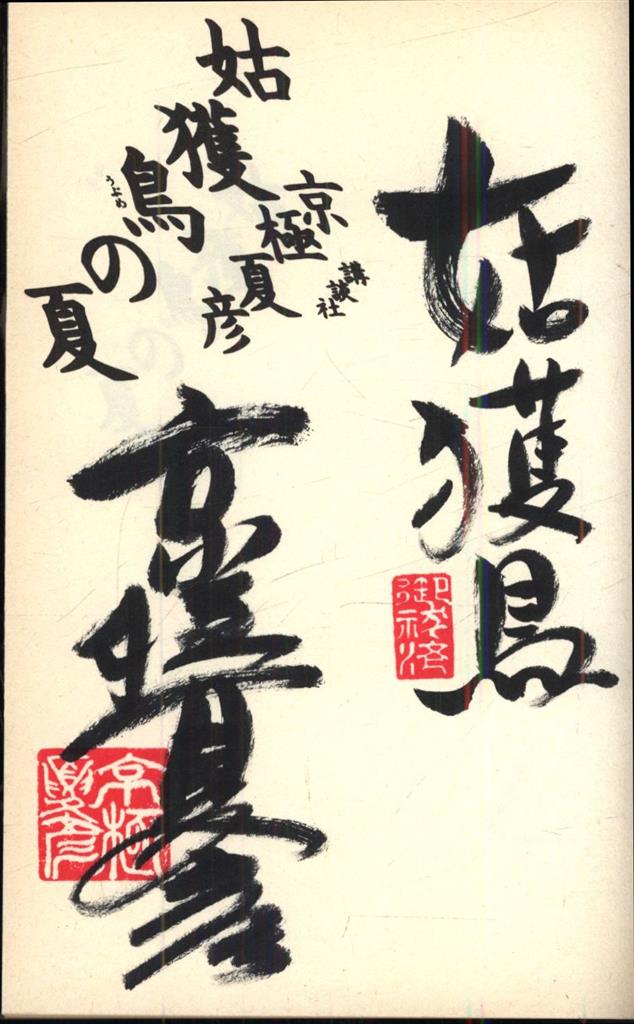 姑獲鳥
御祓済
姑獲鳥の夏
うぶめ
京極夏彦
講談社
京極夏彦
京極夏彦